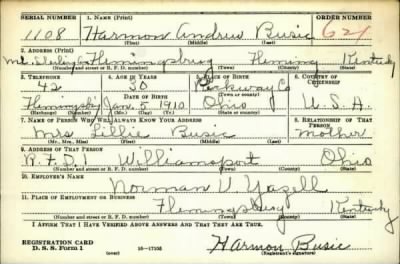 SERIAL NUMBER 1. NAME (Print) ORDER NUMBER
1108 Harmon Andrew Busic 621
(First) (Middle) (Last)
2. ADDRESS (Print)
Flemingsburg Fleming Kentucky
(Number and street or R. F. D. number) (Town) (County) (State)
3. TELEPHONE 4. AGE IN YEARS 5. PLACE OF BIRTH 6. COUNTRY OF CITIZENSHIP
42 30 Pickaway Co
(Town or county)
Flemingsb'g Jan. 5 1910 Ohio U.S.A.
(Exchange) (Number) (Mo.) (Day) (Yr.) (State or country)
7. NAME OF PERSON WHO WILL ALWAYS KNOW YOUR ADDRESS 8. RELATIONSHIP OF THAT PERSON
Mrs Lillie Busic mother
(Mr., Mrs., Miss) (First) (Middle) (Last)
9. ADDRESS OF THAT PERSON
R.F.D.1 Williamsport Ohio
(Number and street or R. F. D. number) (Town) (County) (State)
10. EMPLOYER'S NAME
Norman V. Yazell
11. PLACE OF EMPLOYMENT OR BUSINESS
Flemingsburg Kentucky
(Number and street or R. F. D. number) (Town) (County) (State)
I AFFIRM THAT I HAVE VERIFIED ABOVE ANSWERS AND THAT THEY ARE TRUE.
REGISTRATION CARD
D. S. S. Form 1 16—17105 Harmon Busic
(Registrant's signature)